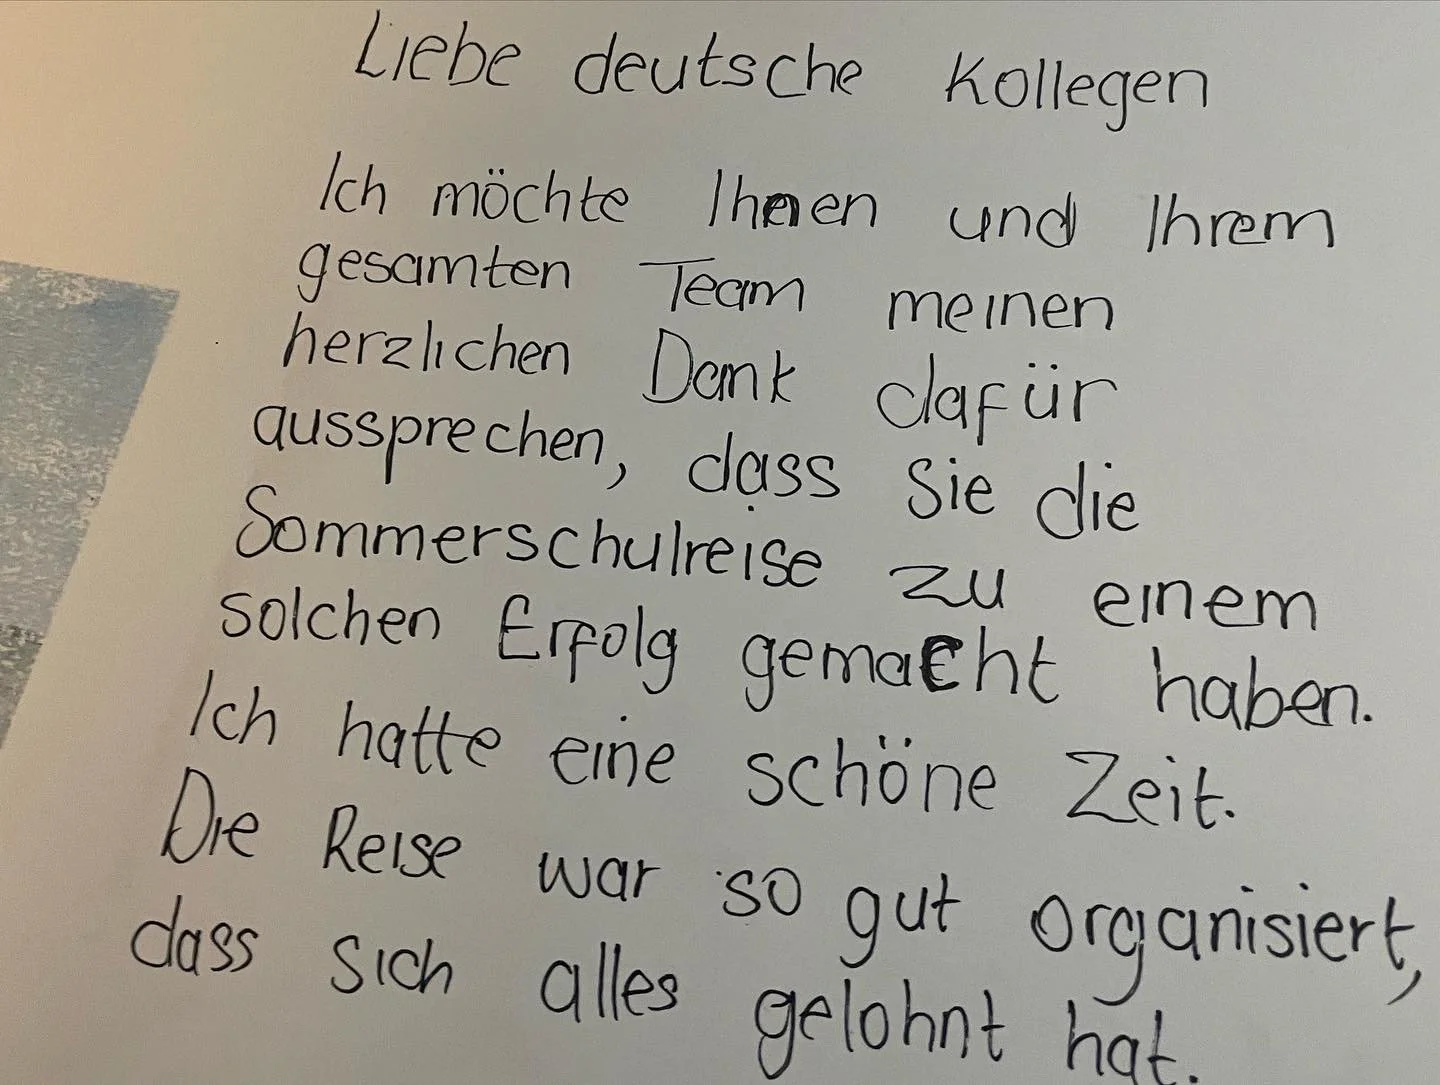 Liebe deutsche Kollegen
Ich möchte Ihnen und Ihrem
gesamten Team meinen
herzlichen Dank dafür
aussprechen, dass Sie die
Sommerschulreise zu einem
solchen Erfolg gemacht haben.
Ich hatte eine schöne Zeit.
Die Reise war so gut organisiert,
dass sich alles gelohnt hat.